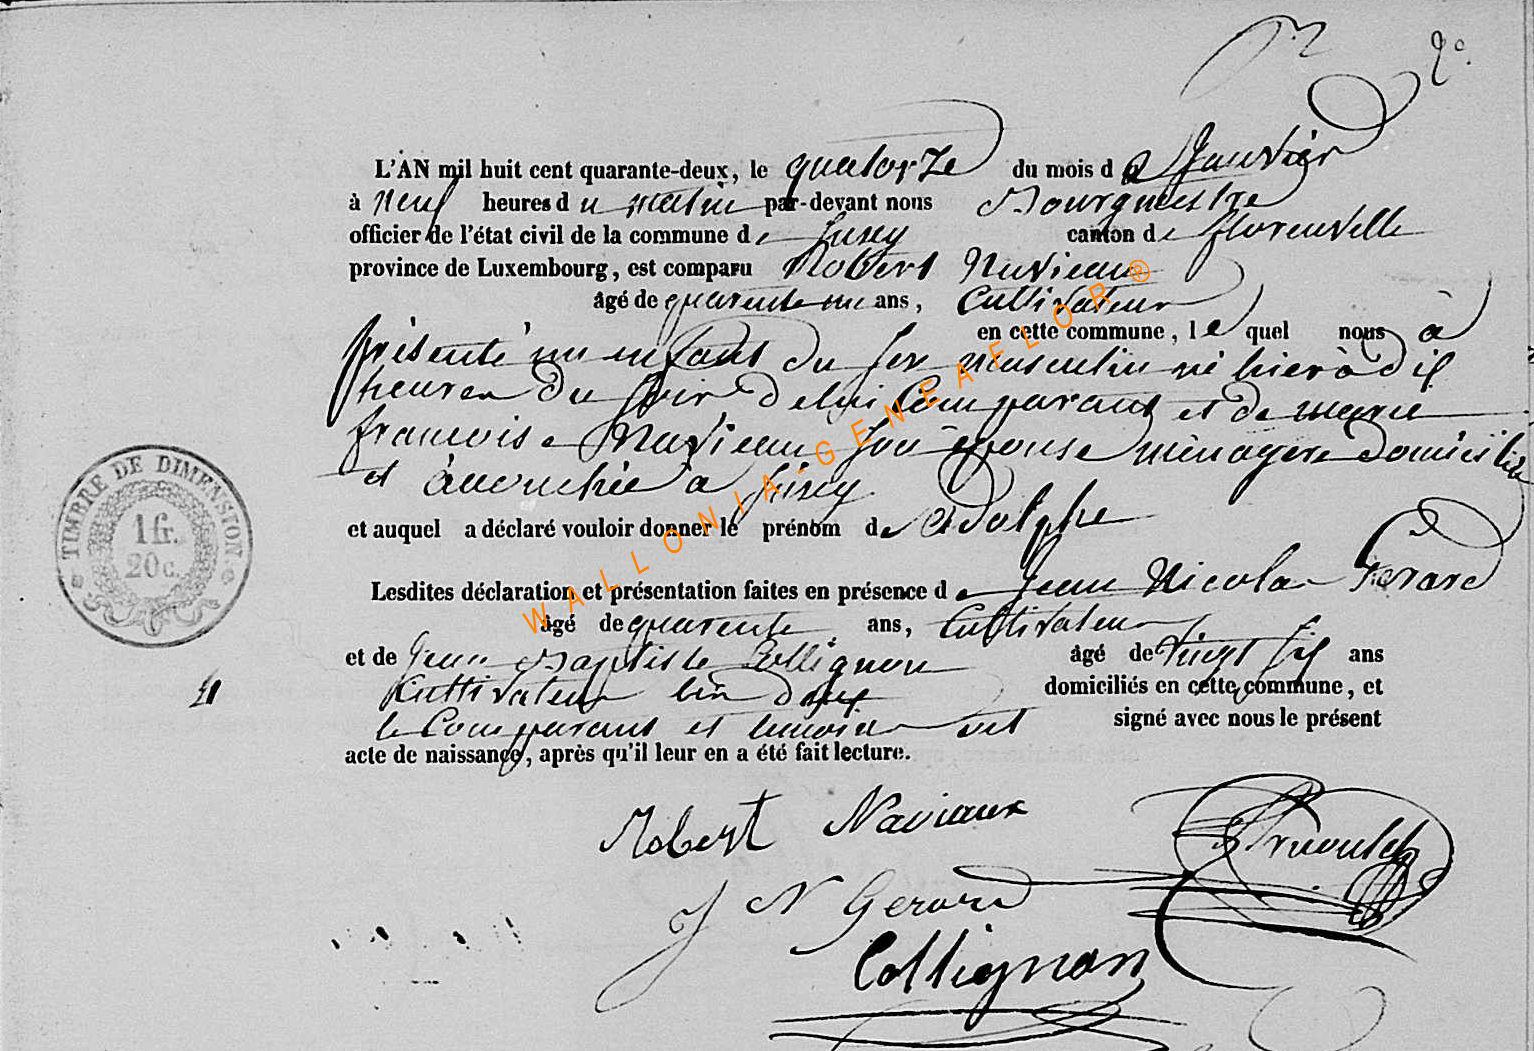 2º
L'AN mil huit cent quarante-deux, le quatorze du mois de Janvier
à neuf heures du matin par-devant nous Bourgmestre
officier de l'état civil de la commune de Suxy canton de florenville
province de Luxembourg, est comparu Robert Navieau
âgé de quarente un ans, Cultivateur
en cette commune, le quel nous à
présenté un enfant du sex masculin né hier à dix
heures du soir de lui Comparant et de marie
francoise Navieau son épouse ménagere domicilié
et acouchée a Suxy
et auquel a déclaré vouloir donner le prénom de Adolphe
Lesdites déclaration et présentation faites en présence de Jean Nicolas Gerard
âgé de quarente ans, Cultivateur
et de Jean Baptiste Collignon âgé de vingt six ans
Cultivateur domiciliés en cette commune, et
le Comparant et temoins ont signé avec nous le présent
acte de naissance, après qu'il leur en a été fait lecture.
TIMBRE DE DIMENSION
1 fr.
20 c.
Robert Naviaux
J N Gerard
Collignon
WALLONIA-GENEAFLOR®